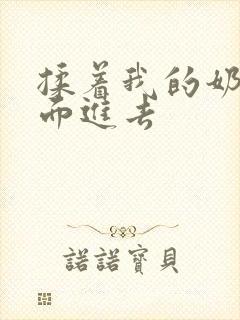 揉着我的奶
而进去
諾諾寶貝